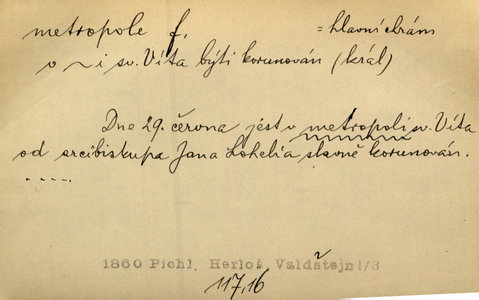 metropole f. = hlavní chrám
v ~ i sv. Víta býti korunován (král)
Dne 29. června jest v metropoli sv. Víta
od arcibiskupa Jana Lohelia slavně korunován.
.....
1860 Pichl, Herloš Valdštejn 1/3
117,16